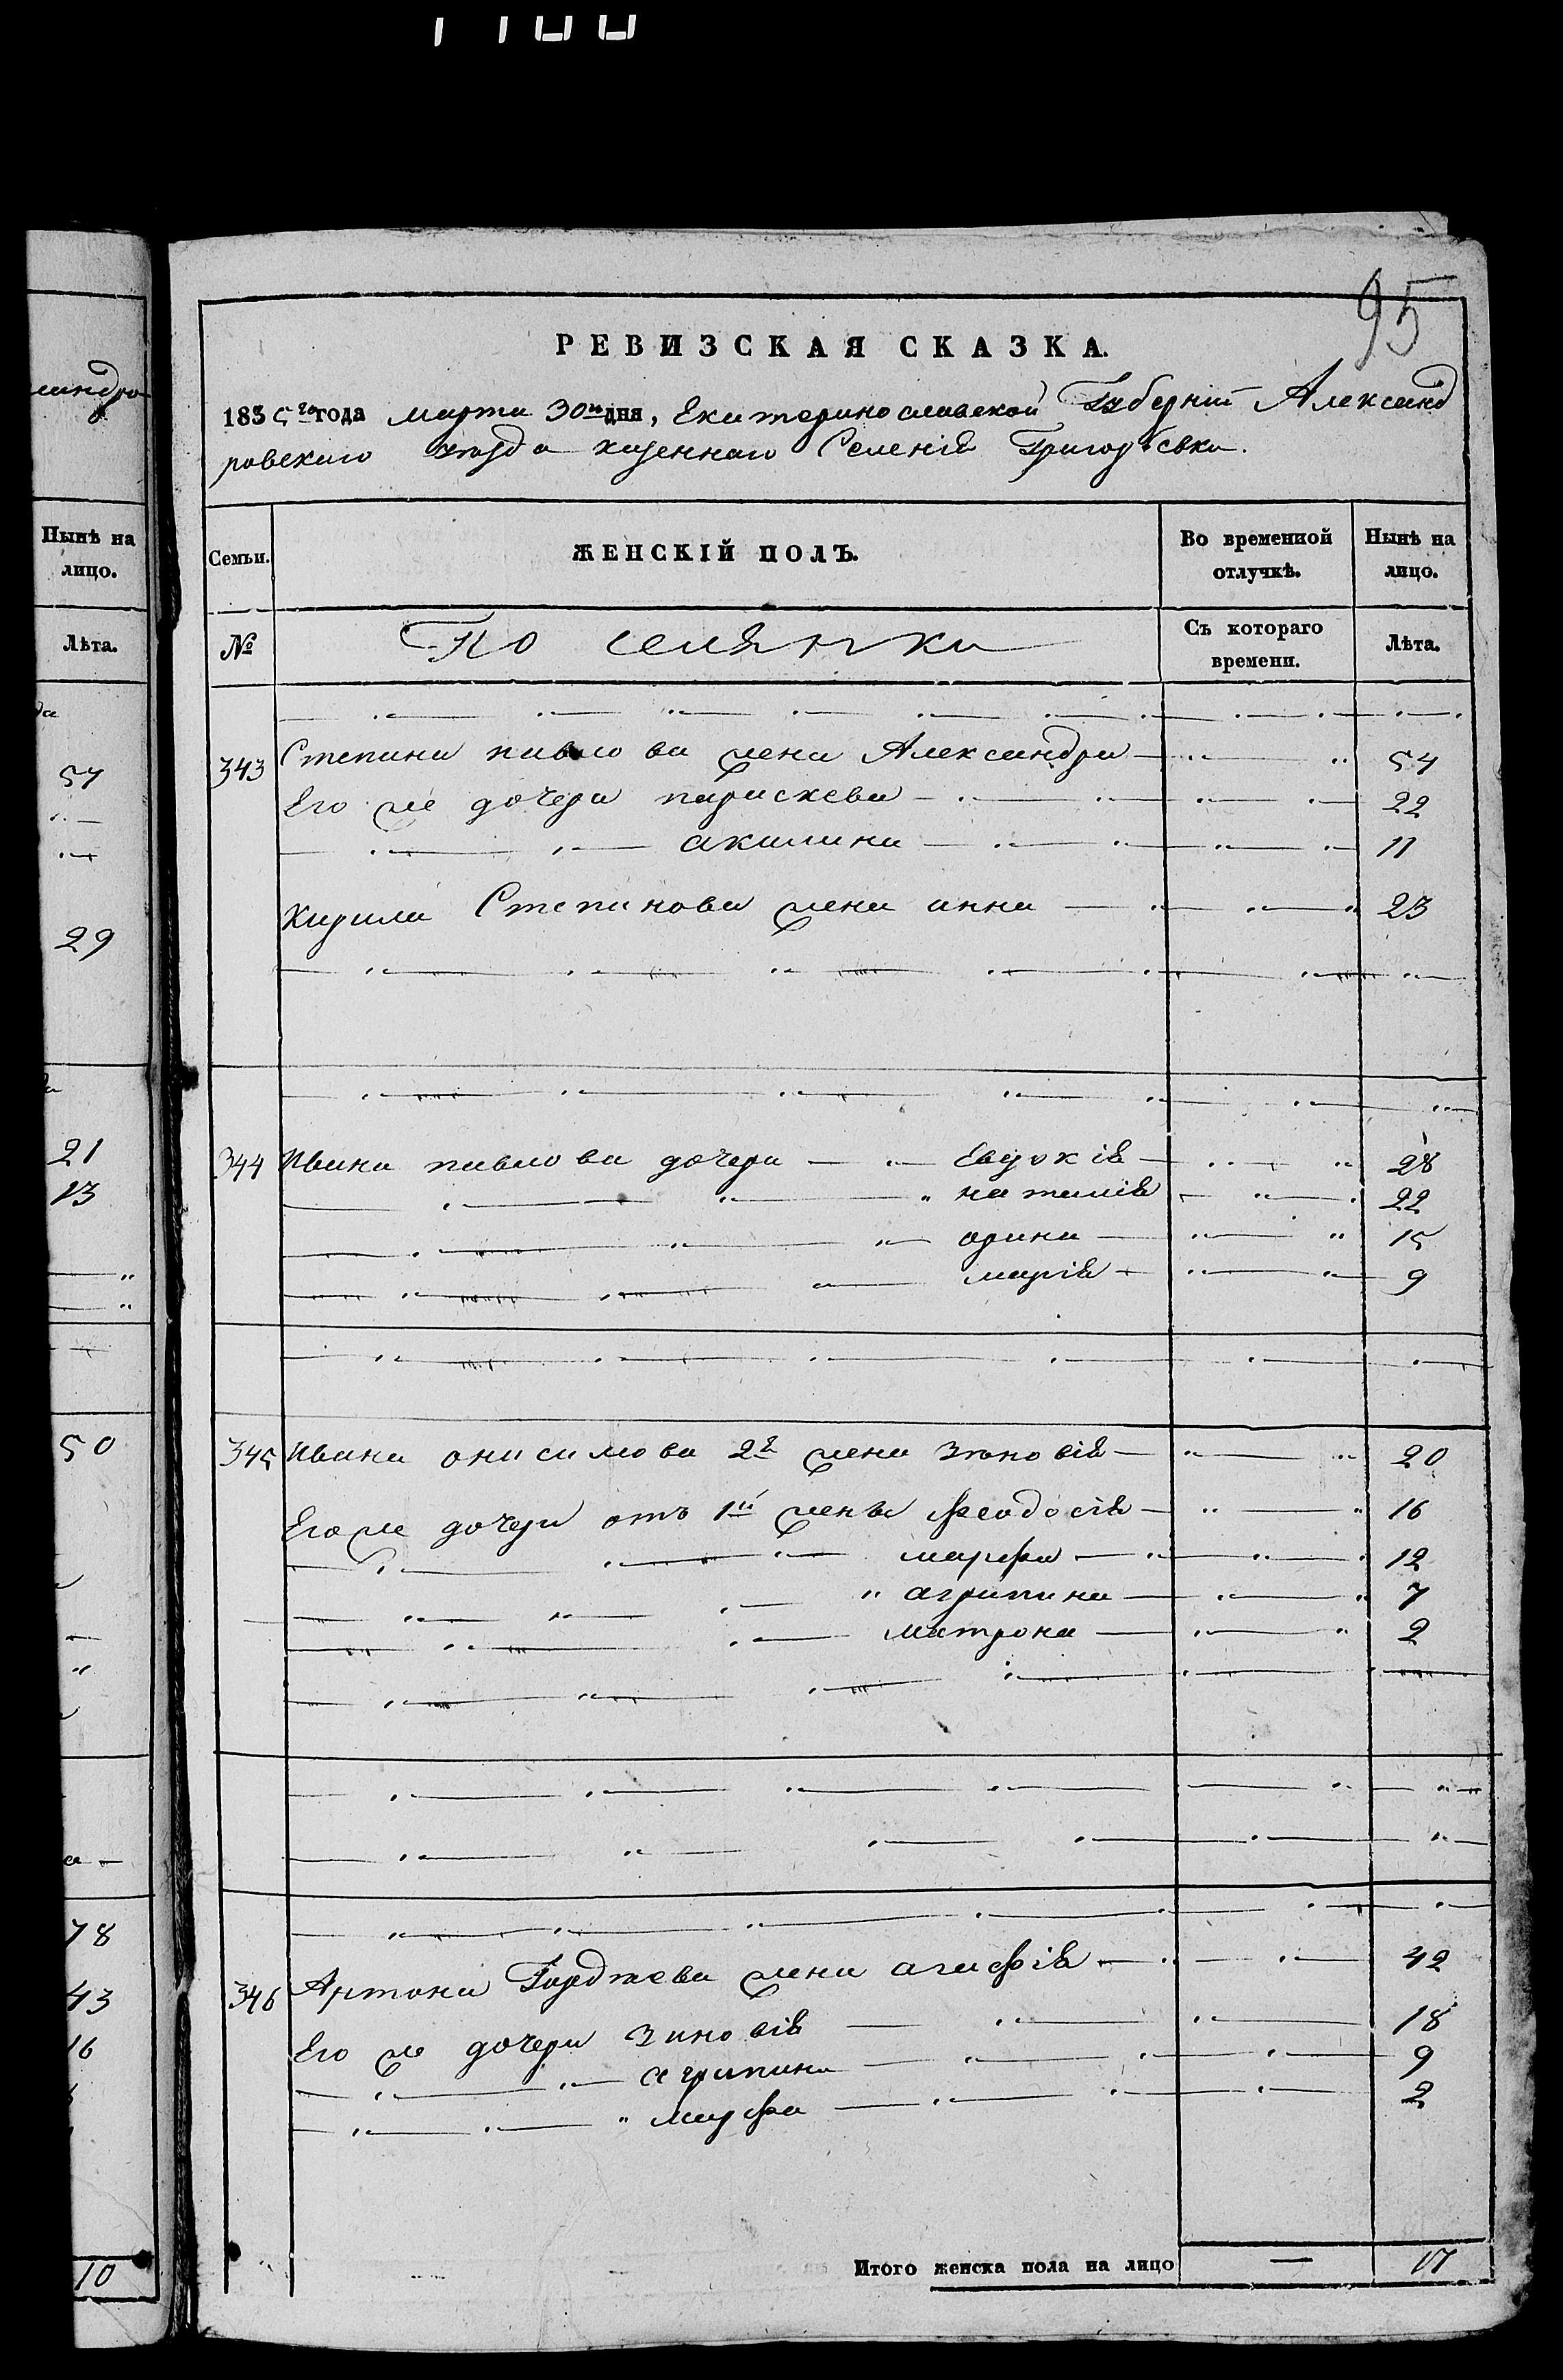 95
РЕВИЗСКАЯ СКАЗКА.
1835 го года марта 30 н дня, Екатеринославской Губерніи Александ
ровского уезда казенного Селенія Григорьевки.
Семьи. ЖЕНСКІЙ ПОЛЪ. Во временной отлучкѣ. Нынѣ на лицо.
№ По селянки Съ котораго времени. Лѣта.
343 Степана павлова жена Александра 54
Его же дочери параскева 22
акилина 11
Кирила Степанова жена анна 23
344 Ивана павлова дочери Евдокія 28
наталія 22
орина 15
марія 9
345 Ивана онисимова 2я жена Зѣновія 20
Его же дочери отъ 1й жены Феодосія 16
марфа 12
агрипина 7
матрона 2
346 Артона жена агафія 42
Его же дочери Зиновія 18
агрипина 9
марфа 2
Итого женска пола на лицо — 17
андро
Нынѣ на
лицо.
Лѣта.
57
29
21
13
50
78
43
16
10